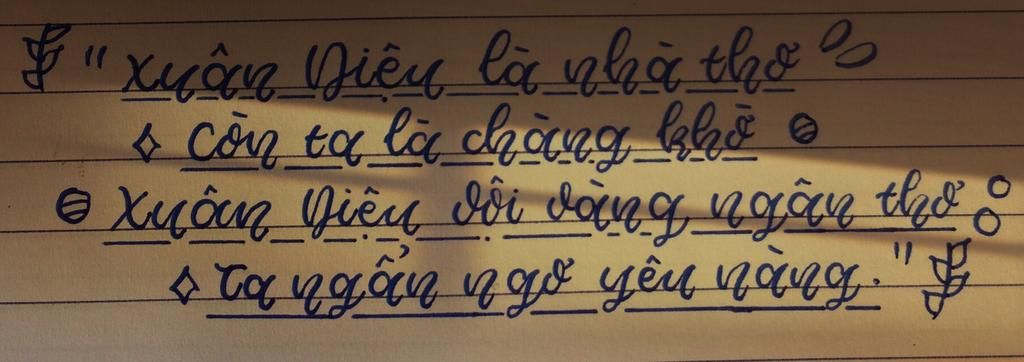 "Xuân Diệu là nhà thơ
Còn ta là chàng khờ
Xuân Diệu vội vàng, ngân thơ
Ta ngẩn ngơ yêu nàng."